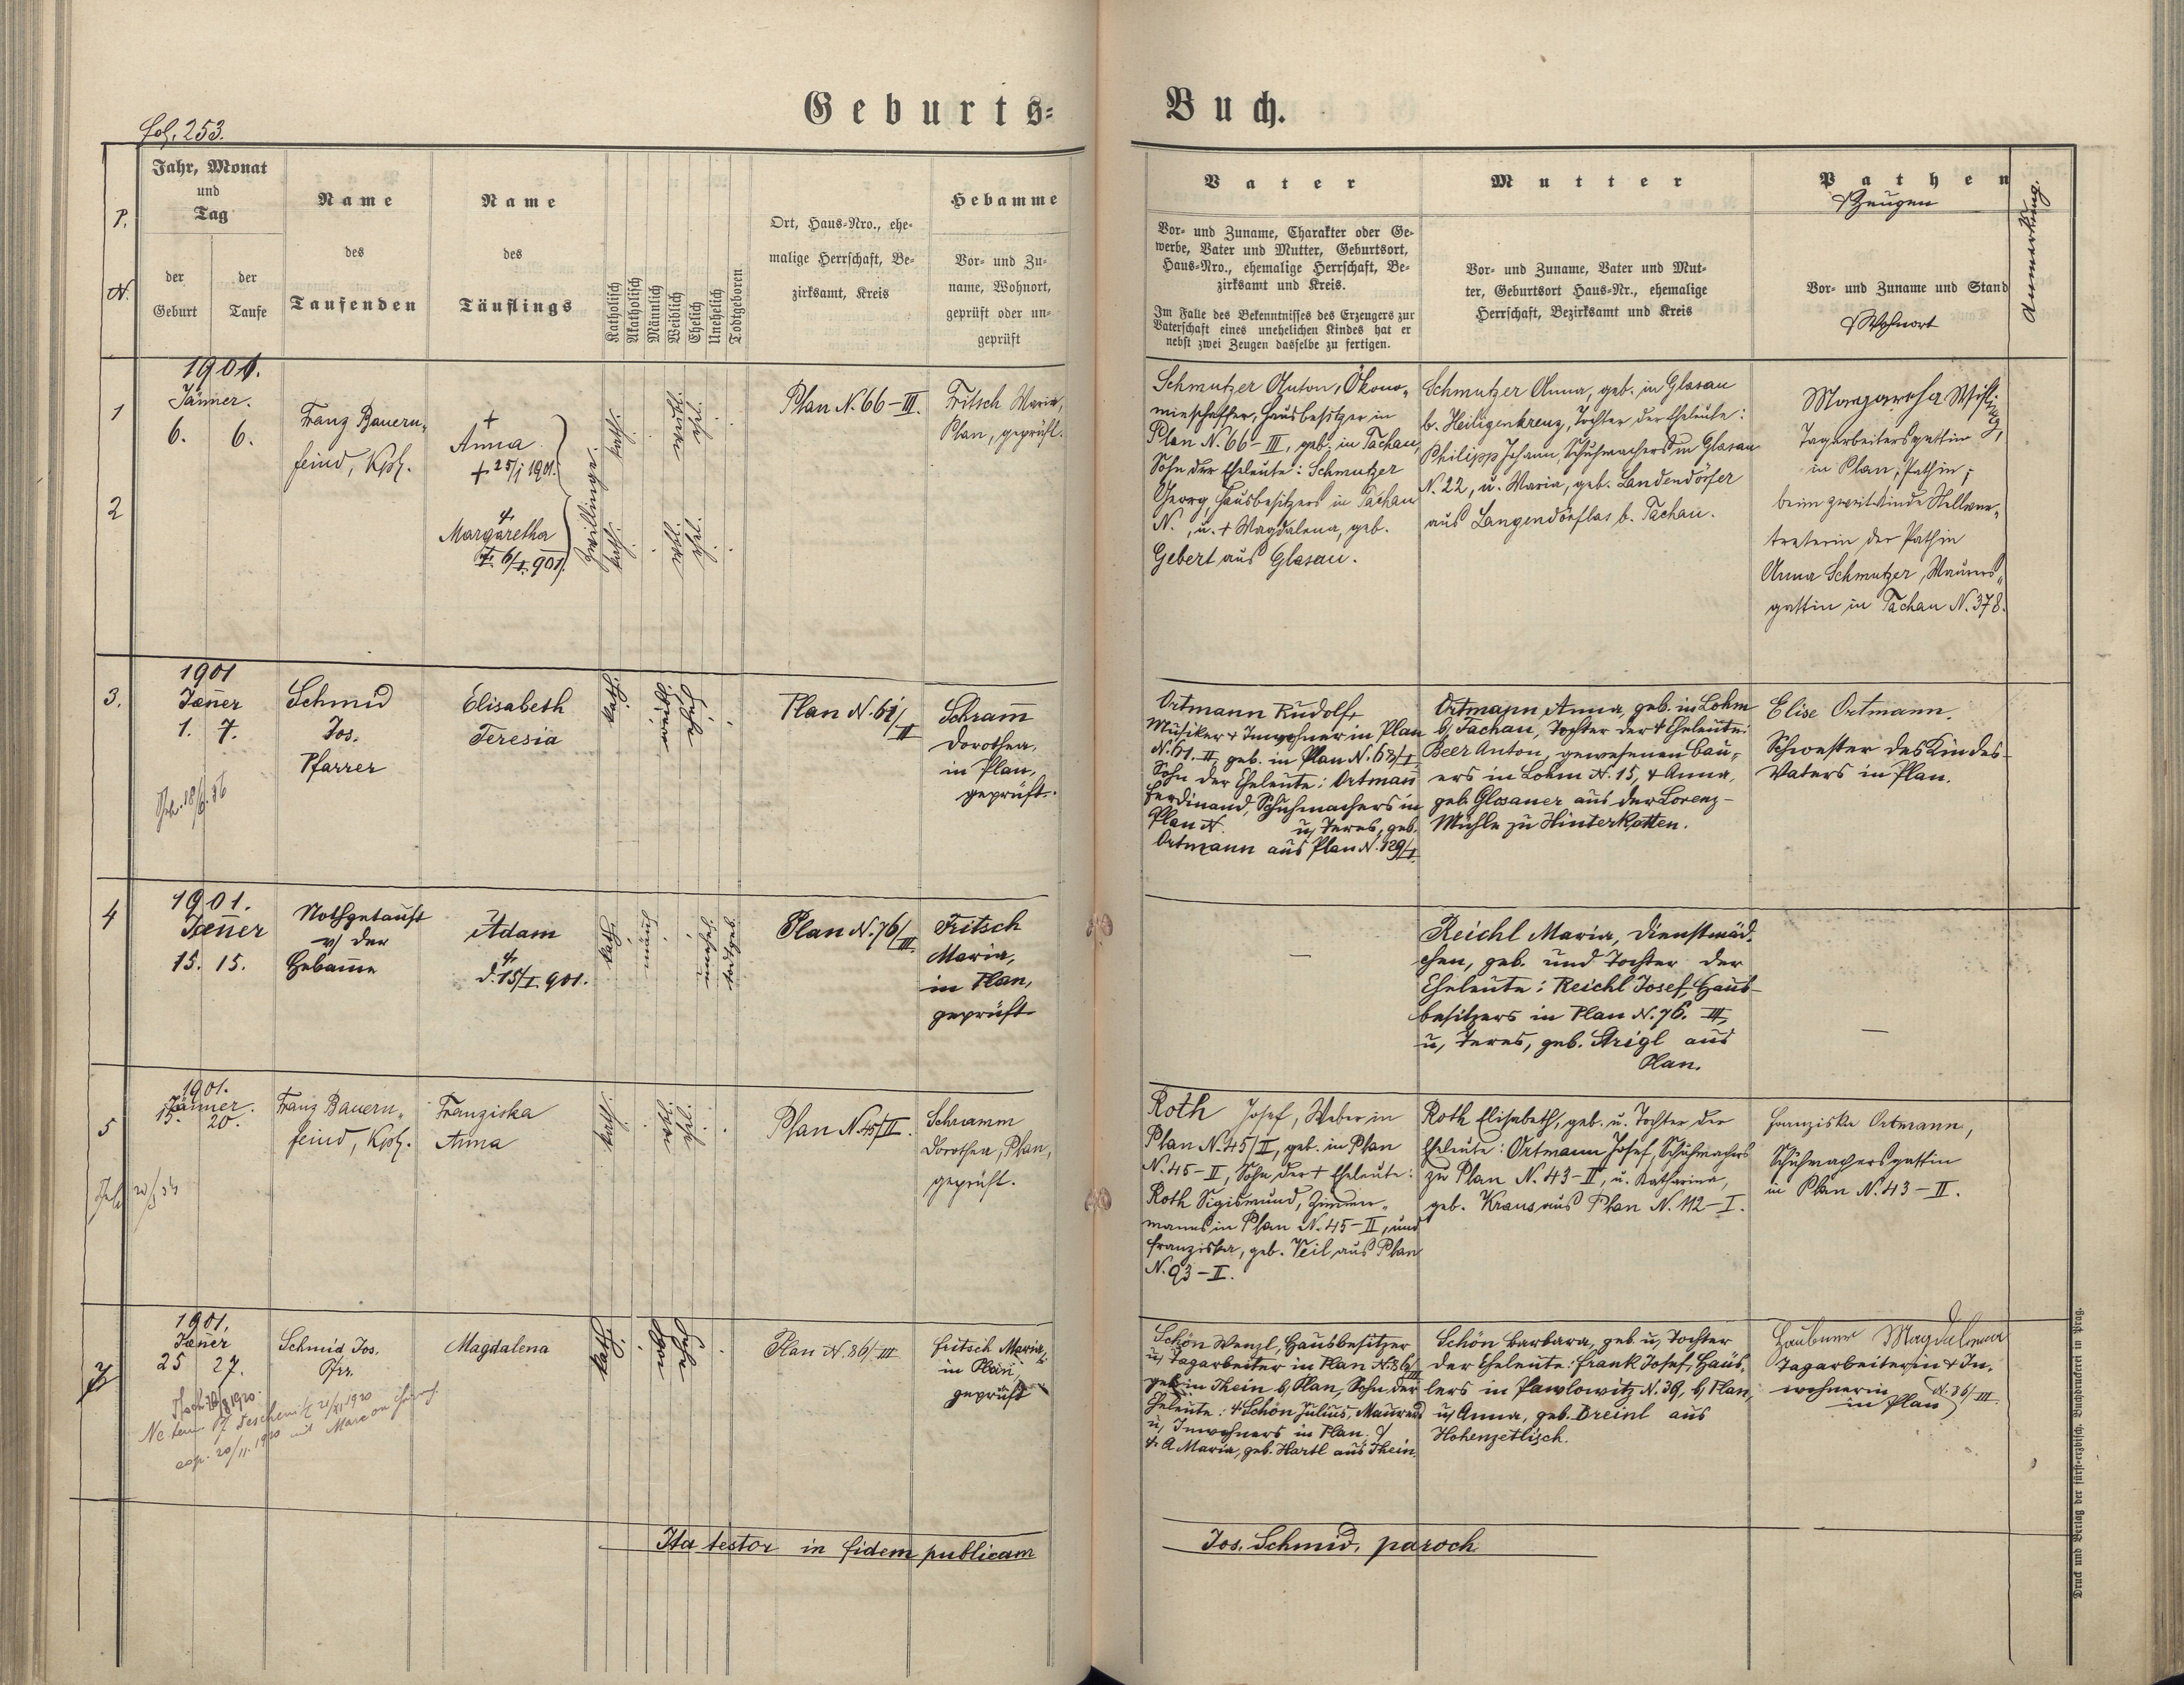 fol. 253.
Geburts-Buch.
P. N.
Jahr, Monat
und
Tag
der
Geburt
der
Taufe
Name
des
Taufenden
Name
des
Täuflings
Katholisch
Akatholisch
Männlich
Weiblich
Ehelich
Unehelich
Todtgeboren
Ort, Haus-Nro., ehe-
malige Herrschaft, Be-
zirksamt, Kreis
Hebamme
Vor- und Zu-
name, Wohnort,
geprüft oder un-
geprüft
Vater
Vor- und Zuname, Charakter oder Ge-
werbe, Vater und Mutter, Geburtsort,
Haus-Nro., ehemalige Herrschaft, Be-
zirksamt und Kreis.
Im Falle des Bekenntnisses des Erzeugers zur
Vaterschaft eines unehelichen Kindes hat er
nebst zwei Zeugen dasselbe zu fertigen.
Mutter
Vor- und Zuname, Vater und Mut-
ter, Geburtsort Haus-Nr., ehemalige
Herrschaft, Bezirksamt und Kreis
Pathen
& Zeugen
Vor- und Zuname und Stand
& Wohnort
Anmerkung.
1
2
1901.
Jänner.
6. 6.
Franz Bauern-
feind, Kpl.
+
Anna
+ 25/1 1901.
+
Margaretha
6/I. 901.
Zwillinge.
kath.
ehel.
kath.
ehel.
Plan N. 66-III.
Fritsch Maria,
Plan, geprüft.
Schmutzer Anton, Ökono-
mieschaffer, Hausbesitzer in
Plan N. 66-III, geb. in Tachau,
Sohn der Eheleute: Schmutzer
Georg, Hausbesitzers in Tachau
N. , u. + Magdalena, geb.
Gebert aus Glasau.
Schmutzer Anna, geb. in Glasau
b. Heiligenkreuz, Tochter der Eheleute:
Philipp Johann, Schuhmachers in Glasau
N. 22, u. Maria, geb. Landendörfer
aus Langendörflas b. Tachau.
Margaretha
Tagarbeitersgattin
in Plan, Pathin;
beim zweit. Kinde Stellver-
treterin der Pathin
Anna Schmutzer, Maurers-
gattin in Tachau N. 378.
3.
1901
Jäner
1. 7.
Schmid
Jos.
Pfarrer
Elisabeth
Teresia
kath.
Plan N. 61/II
Schram̄
Dorothea,
in Plan,
geprüft.
Ortmann Rudolf,
Musiker & Inwohner in Plan
N. 61. II, geb. in Plan
Sohn der Eheleute: Ortman̄
Ferdinand, Schuhmachers in
Plan N. u, Teres, geb.
Ortmann aus Plan N. 129/I.
Ortmann Anna, geb. in Lohm
b, Tachau, Tochter der + Eheleute:
Beer Anton, gewesenen Bau-
ers in Lohm N. 15, & Anna,
geb. Glosauer aus der Lorenz-
Mühle zu Hinterkotten.
Elise Ortmann.
Schwester des Kindes-
Vaters in Plan.
4
1901.
Jän̄er
15. 15.
Nothgetauft
v/ der
Hebam̄e
Adam
+
d. 15/I. 901.
kath.
män̄l.
unehel.
todtgeb.
Plan N. 76/III.
Fritsch
Maria,
in Plan,
geprüft
—
Reichl Maria, Dienstmäd-
chen, geb. und Tochter der
Eheleute: Reichl Josef, Haus-
besitzers in Plan N. 76. III,
u, Teres, geb. Strigl aus
Plan.
—
5
1901.
Jänner.
15. 20.
Franz Bauern-
feind, Kpl.
Franziska
Anna
kath.
ehel.
Plan N. 45/II.
Schramm
Dorothea, Plan,
geprüft.
Roth Josef, Weber in
Plan N. 45/II, geb. in Plan
N. 45-II, Sohn der + Eheleute:
Roth Sigismund, Zimmer-
manns in Plan N. 45-II, und
Franziska, geb. Veil aus Plan
N. 93-II.
Roth Elisabeth, geb. u. Tochter der
Eheleute: Ortmann Josef, Schuhmachers
zu Plan N. 43-II, u. Katharina,
geb. Kraus aus Plan N. 112-I.
Franziska Ortmann,
Schuhmachersgattin
in Plan N. 43-II.
1901.
Jän̄er
25 27.
Schmid Jos.
Pfrr.
Magdalena
kath.
Plan N. 86/III
Fritsch Maria,
in Plan,
geprüft
Schön Wenzl, Hausbesitzer
u, Tagarbeiter in Plan N. 86/III
geb. in Thein b, Plan, Sohn der
Eheleute: + Schön Julius, Maurers
u, Inwohners in Plan, &
+ A. Maria, geb. Hartl aus Thein.
Schön Barbara, geb. u, Tochter
der Eheleute: Frank Josef, Häus-
lers in Pawlowitz N. 39, b, Plan,
u, Anna, geb. Breinl aus
Hohenzetlisch.
Haubner Magdalena
Tagarbeiterin & In-
wohnerin
in Plan N. 86/III.
Ita testor in fidem publicam
Jos. Schmid, paroch.
Druck und Verlag der fürst-erzbisch. Buchdruckerei in Prag.